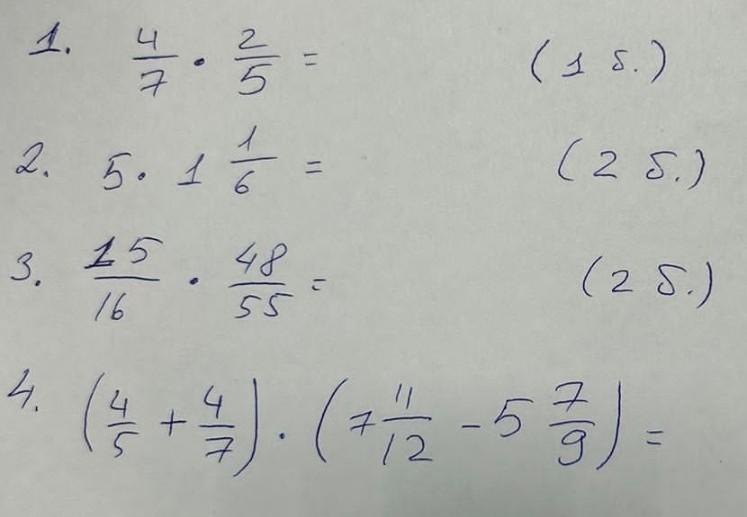 1. 4/7 · 2/5 = (1 б.)
2. 5 · 1 1/6 = (2 б.)
3. 15/16 · 48/55 = (2 б.)
4. (4/5 + 4/7) · (7 11/12 - 5 7/9) =